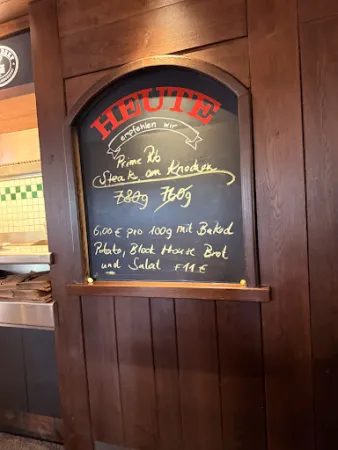 HEUTE
empfehlen wir
Prime Rib
Steak am Knochen
780g 760g
6,00€ pro 100g mit Baked
Potato, Block House Brot
und Salat